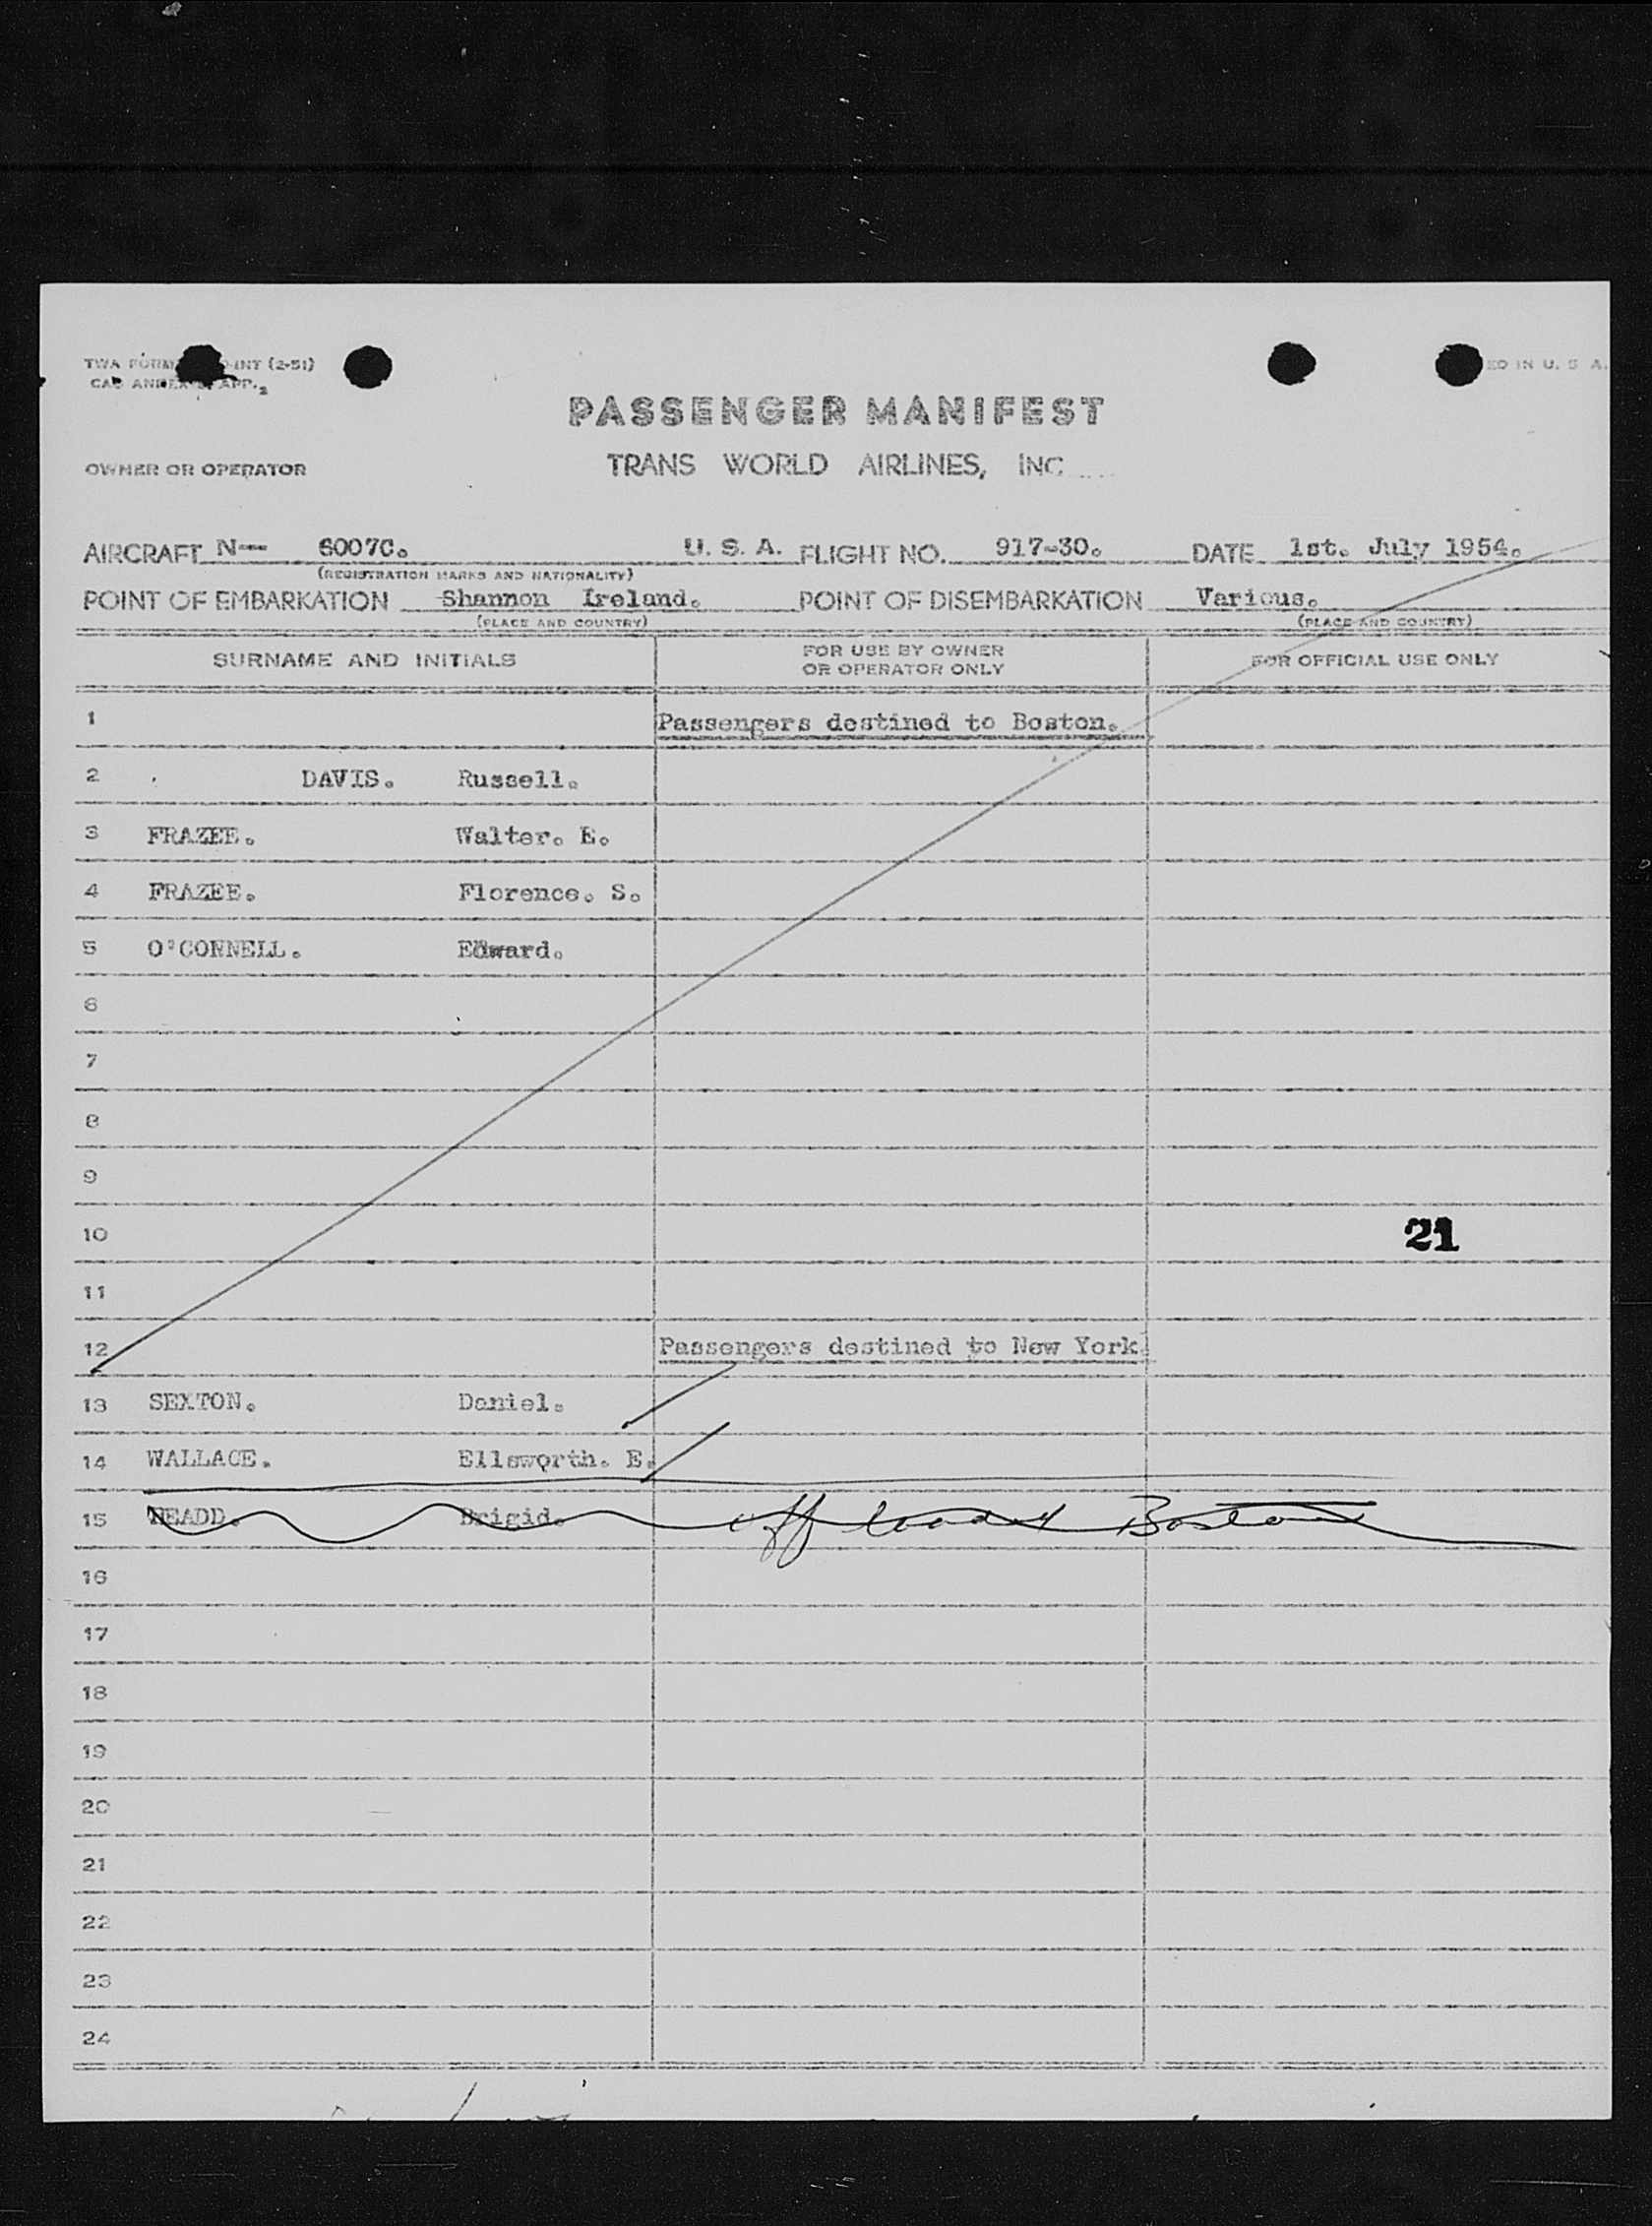 TWA FORM -INT (2-51)
CAO ANNEX 9, APP. 2
ED IN U. S A.
PASSENGER MANIFEST
OWNER OR OPERATOR TRANS WORLD AIRLINES, INC
AIRCRAFT N-- 6007C. U. S. A. FLIGHT NO. 917-30. DATE 1st. July 1954.
(REGISTRATION MARKS AND NATIONALITY)
POINT OF EMBARKATION Shannon Ireland. POINT OF DISEMBARKATION Various.
(PLACE AND COUNTRY) (PLACE AND COUNTRY)
SURNAME AND INITIALS FOR USE BY OWNER OR OPERATOR ONLY FOR OFFICIAL USE ONLY
1 Passengers destined to Boston.
2 DAVIS. Russell.
3 FRAZEE. Walter. E.
4 FRAZEE. Florence. S.
5 O'CONNELL. Edward.
6
7
8
9
10 21
11
12 Passengers destined to New York.
13 SEXTON. Daniel.
14 WALLACE. Ellsworth. E.
15 Brigid. off loaded Boston
16
17
18
19
20
21
22
23
24